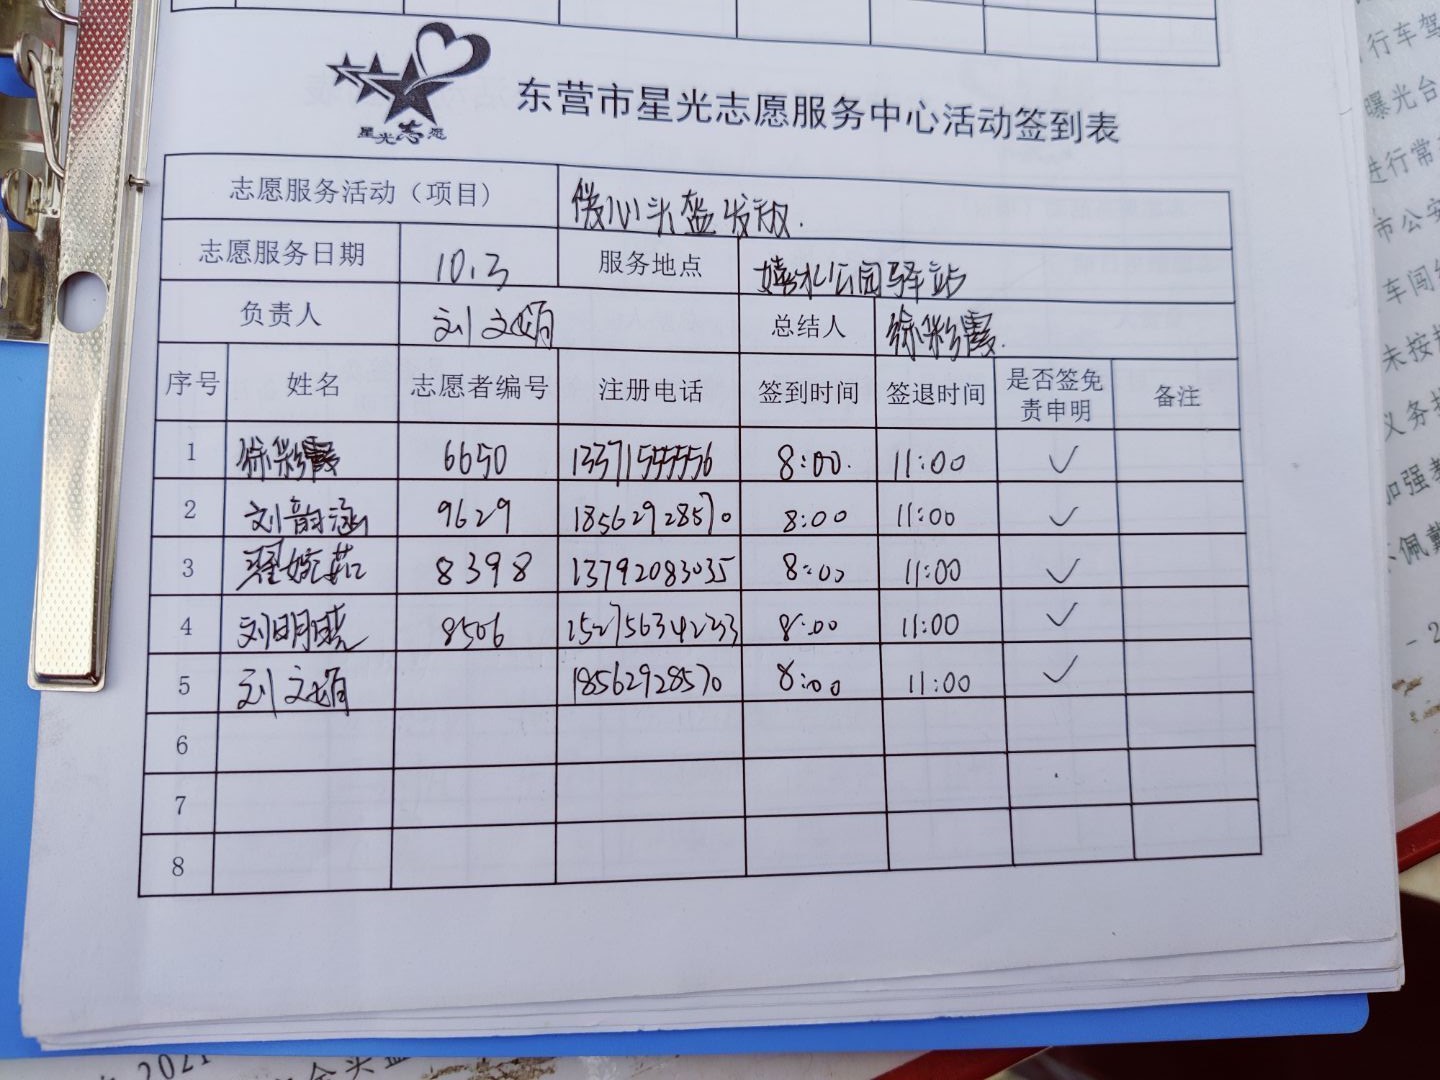 星光志愿
东营市星光志愿服务中心活动签到表
志愿服务活动（项目） 暖心头盔发放.
志愿服务日期 10.3 服务地点 嬉水公园驿站
负责人 刘文娟 总结人 徐彩霞.
序号 姓名 志愿者编号 注册电话 签到时间 签退时间 是否签免责申明 备注
1 徐彩霞 6650 13371555556 8:00. 11:00 ✓
2 刘韵涵 9629 18562928570 8:00 11:00 ✓
3 翟婉茹 8398 13792083035 8:00 11:00 ✓
4 刘明晓 8506 8:00 11:00 ✓
5 刘文娟 18562928570 8:00 11:00 ✓
6
7
8
行车驾
曝光台
进行常
市公安
车闯红
未按规
义务技
加强教
佩戴
- 2
2021